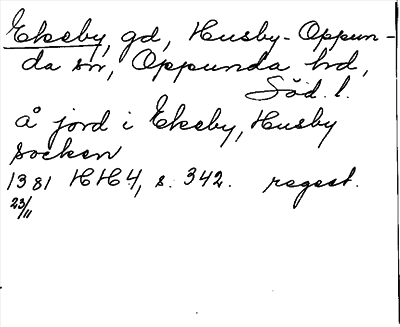 Ekeby, gd, Husby-Oppun-
da sn, Oppunda hd,
Söd. l.
å jord i Ekeby, Husby
socken
1381 HH4, s. 342. regest.
23/11